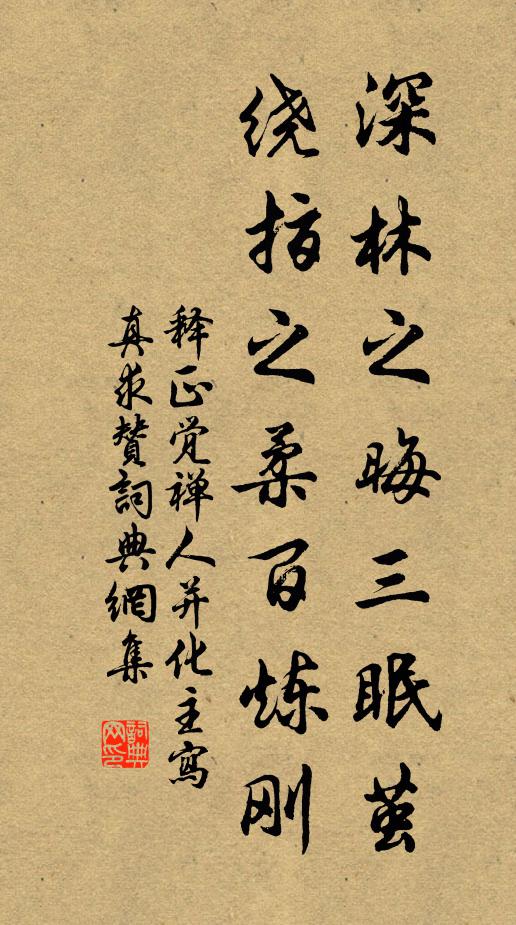 深林之晦三眠茧
绕指之柔百炼刚
释正觉禅人并化主寫
真求赞詞典網集
詞典
网印